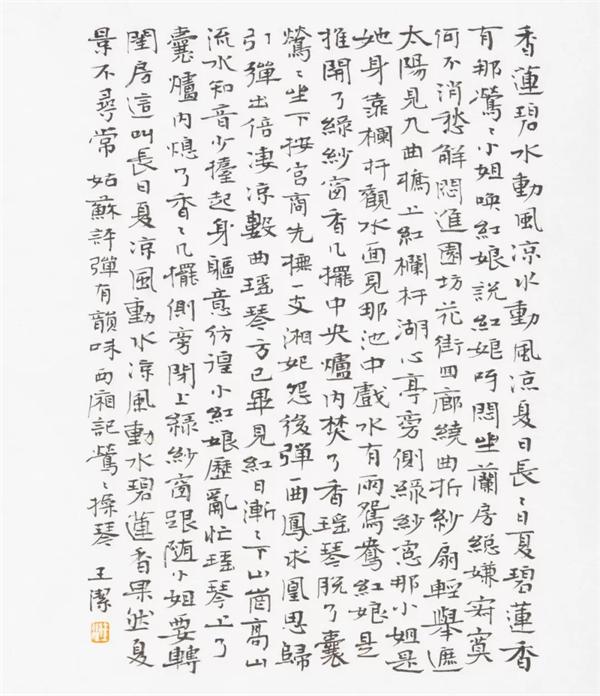 香蓮碧水動風涼水動風涼夏日長々日夏碧蓮香
有那鶯々小姐喚紅娘說紅娘呀悶坐蘭房總嫌寂寞
何不消愁解悶進園坊花街四廊繞曲折紗扇輕舉遮
太陽見九曲橋上紅欄杆湖心亭旁側綠紗窗那小姐是
她身靠欄杆觀水面見那池中戲水有兩鴛鴦紅娘是
推開了綠紗窗香几擺中央爐內焚了香瑤琴脫了囊
鶯々坐下按宮商先撫一支湘妃怨後彈一曲鳳求凰思歸
引彈出倍淒涼數曲瑤琴方已畢見紅日漸々下山崗高山
流水知音少擡起身軀意彷徨小紅娘歷亂忙瑤琴上了
囊爐內熄了香々几擺側旁閉上綠紗窗跟隨小姐要轉
閨房這叫長日夏涼風動水涼風動水碧蓮香果然夏
景不尋常姑蘇評彈有韻味西廂記鶯々操琴 王潔